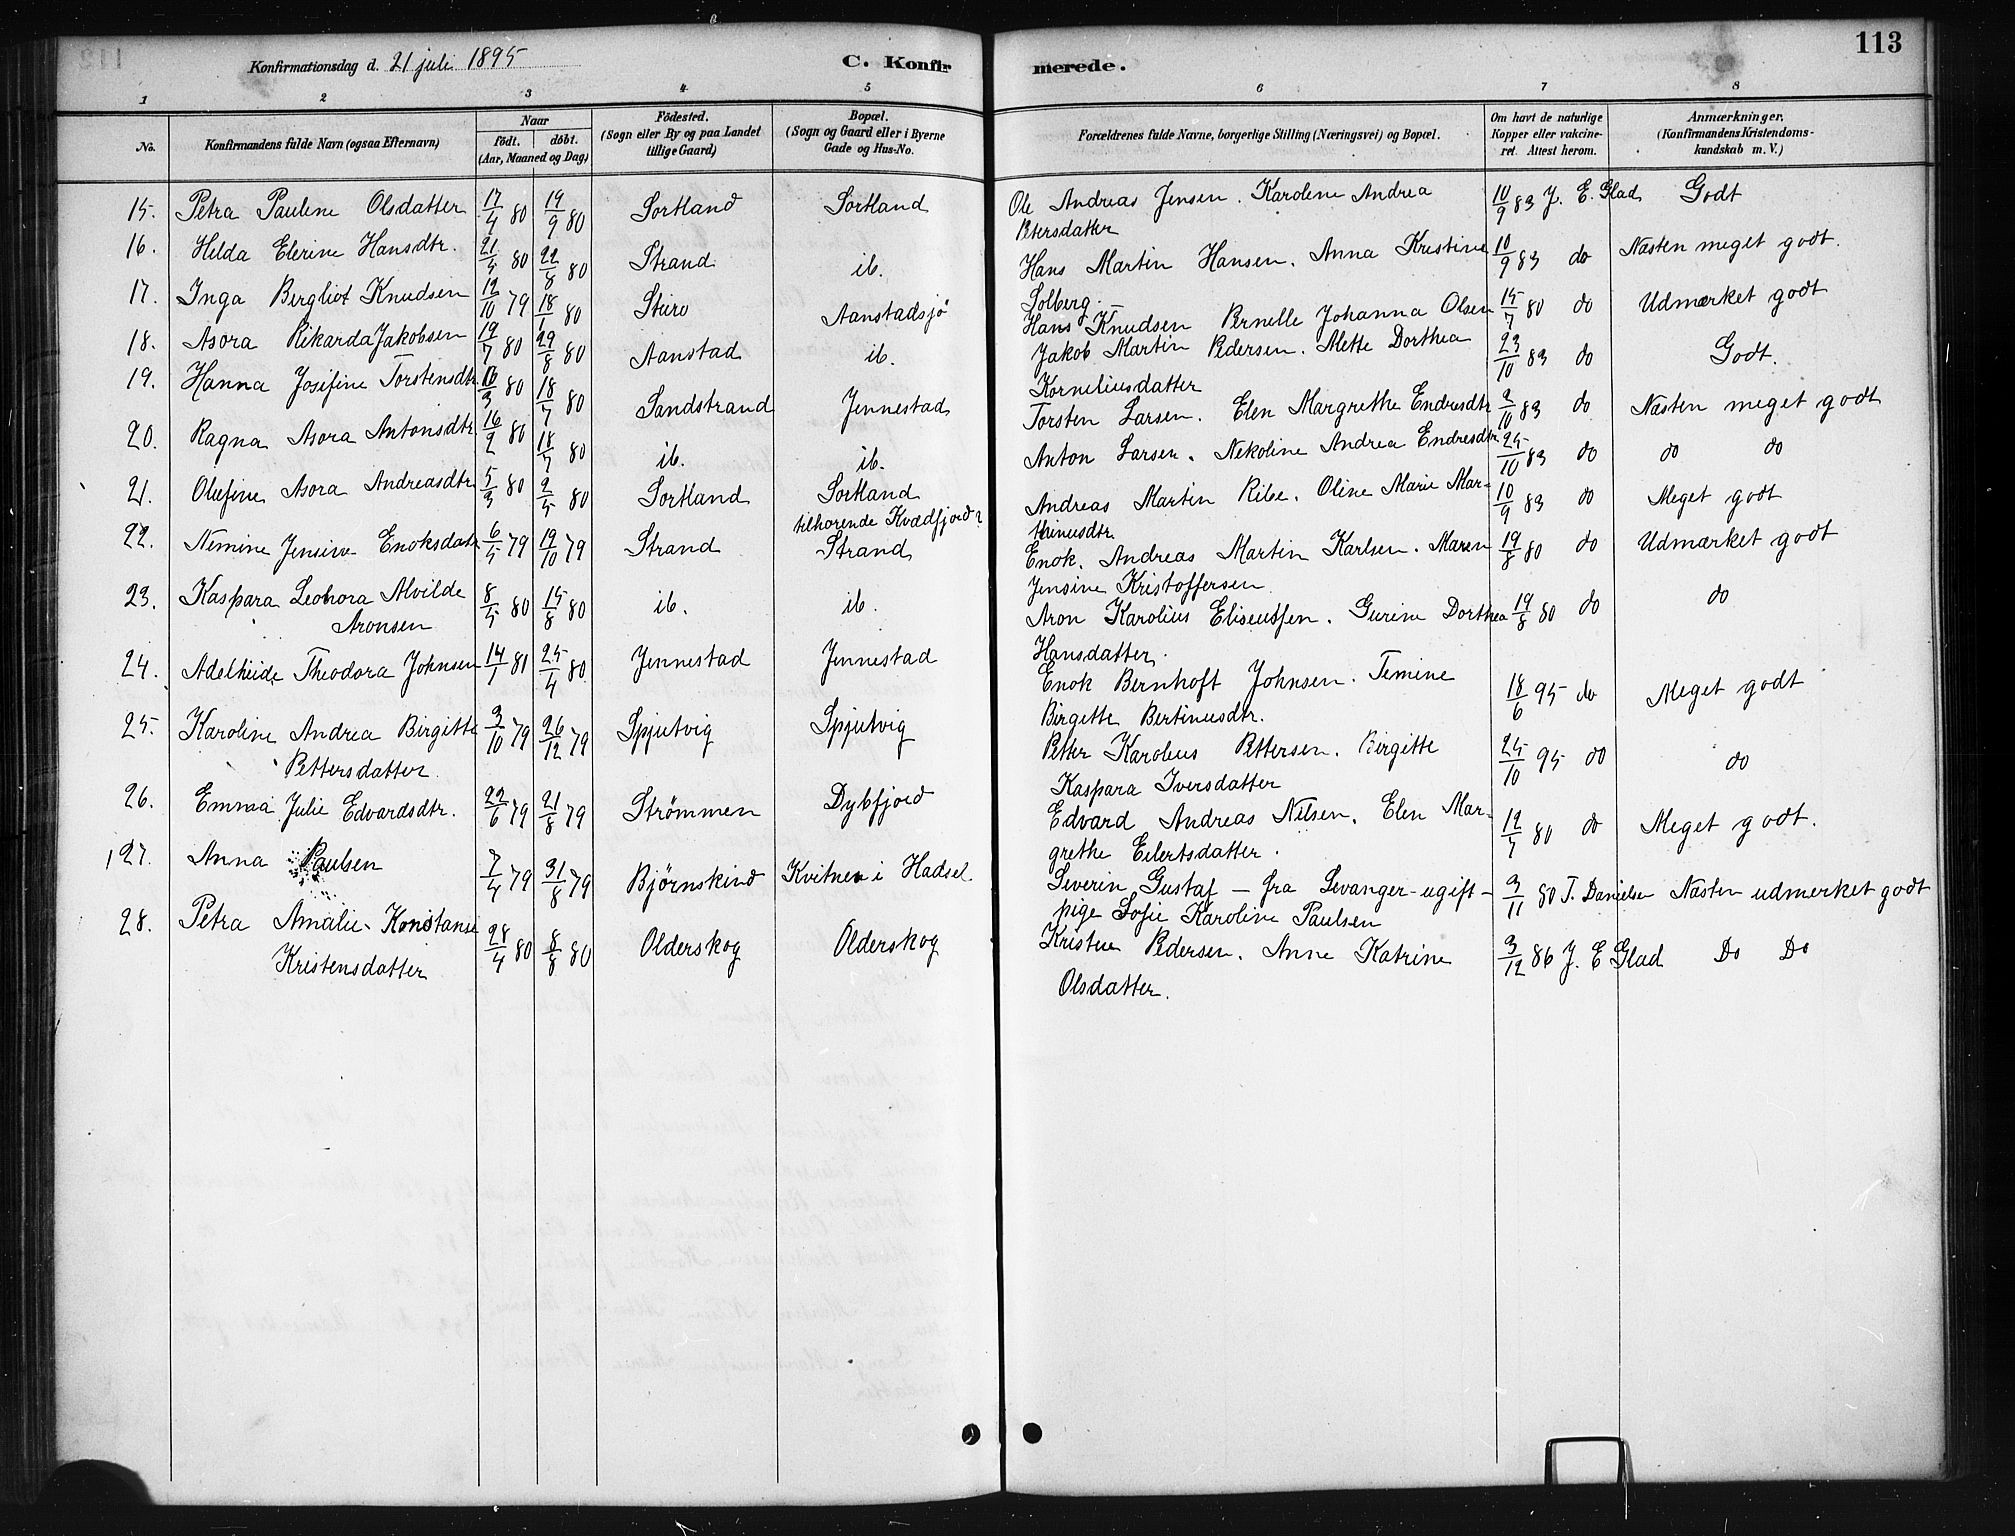 113
Konfirmationsdag d. 21 juli 1895
C. Konfirmerede.
1 2 3 4 5 6 7 8
No.
Konfirmandens fulde Navn (ogsaa Efternavn)
Naar
födt. döbt.
(Aar, Maaned og Dag)
Födested.
(Sogn eller By og paa Landet
tillige Gaard)
Bopæl.
(Sogn og Gaard eller i Byerne
Gade og Hus-No.
Forældrenes fulde Navne, borgerlige Stilling (Næringsvei) og Bopæl.
Om havt de naturlige
Kopper eller vakcine-
ret. Attest herom.
Anmærkninger,
(Konfirmandens Kristendoms-
kundskab m. V.)
15. Petra Pauline Olsdatter 17/4 80 19/9 80 Sortland Sortland Ole Andreas Jensen. Karoline Andrea 10/9 83 J. E. Glad Godt
Petersdatter
16. Helda Elerine Hansdtr. 21/4 80 22/8 80 Strand ib. Hans Martin Hansen. Anna Kristine 10/9 83 do Næsten meget godt.
Solberg.
17. Inga Bergliot Knudsen 12/10 79 18/1 80 Sturo Aanstadsjö Hans Knudsen Pernelle Johanna Olsen 15/7 80 do Udmærket godt
18. Asora Rikarda Jakobsen 19/7 80 29/8 80 Aanstad ib. Jakob Martin Pedersen. Alette Dorthea 23/10 83 do Godt.
Korneliusdatter
19. Hanna Josefine Torstensdtr 16/3 80 18/7 80 Sandstrand Jennestad Torsten Larsen. Elen Margrethe Endresdtr 2/10 83 do Næsten meget godt
20. Ragna Asora Antonsdtr 16/2 80 18/7 80 ib. ib. Anton Larsen. Nekoline Andrea Endresdtr 25/10 83 do do do
21. Olufine Asora Andreasdtr 5/3 80 2/5 80 Sortland Sortland Andreas Martin Ribe. Oline Marie Mar- 10/9 83 do Meget godt
tilhorende Kvædfjord?
thinusdtr.
22. Nemine Jensine Enoksdatr 6/5 79 19/10 79 Strand Strand Enok. Andreas Martin Karlsen. Maren 19/8 80 do Udmærket godt
Jensine Kristoffersen
23. Kaspara Leonora Alvilde 8/5 80 15/8 80 ib. ib. Aron Karolius Eliseussen. Gurine Dorthea 19/8 80 do do
Aronsen
Hansdatter.
24. Adelheide Theodora Johnsen 14/1 81 25/4 80 Jennestad Jennestad Enok Bernhoft Johnsen. Temine 18/6 95 do Meget godt
Birgitte Bertinusdtr.
25. Karoline Andrea Birgitte 3/10 79 26/12 79 Spjutvig Spjutvig Petter Karolius Pettersen. Birgitte 25/10 95 do do
Pettersdatter
Kaspara Iversdatter
26. Emma Julie Edvardsdtr. 22/6 79 21/8 79 Strømmen Dybfjord Edvard Andreas Nilsen. Elen Mar- 12/7 80 do Meget godt.
grethe Eilertsdatter.
27. Anna Paulsen 7/4 79 31/8 79 Bjørnskind Kvitnes i Hadsel. Severin Gustaf – fra Levanger – ugift – 3/11 80 T. Danielsen Næsten udmerket godt
pige Sofie Karoline Paulsen
28. Petra Amalie Konstanse 28/4 80 8/8 80 Olderskog Olderskog Kristen Pedersen. Anne Katrine 3/12 86 J. E Glad Do Do
Kristensdatter
Olsdatter.